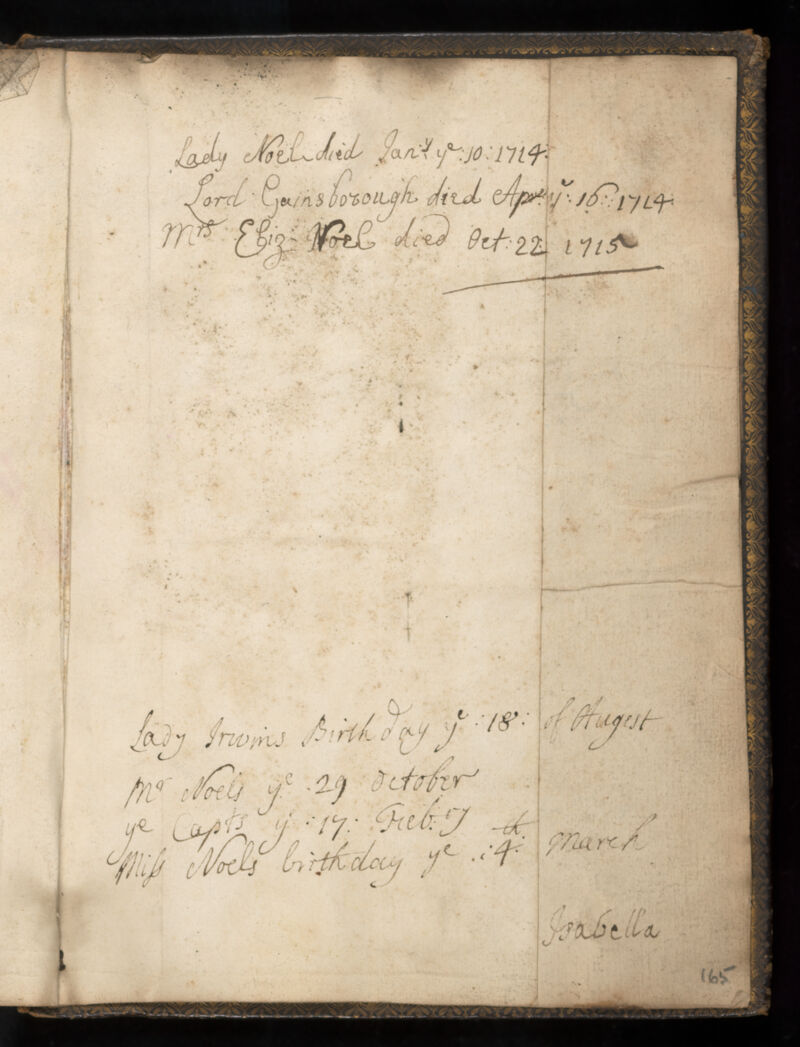 Lady Noel died Jan:ry ye: 10: 1714:
Lord Gainsborough died Apr: ye: 16: 1714
Mrs Eliz: Noel died Oct: 22: 1715
Lady Irwins Birth day ye: 18: of Augest
Mr Noels ye 29 October
ye Capts ye: 17: Feeb:ry
Miss Noels birthday ye : 4:th March
Isabella
165